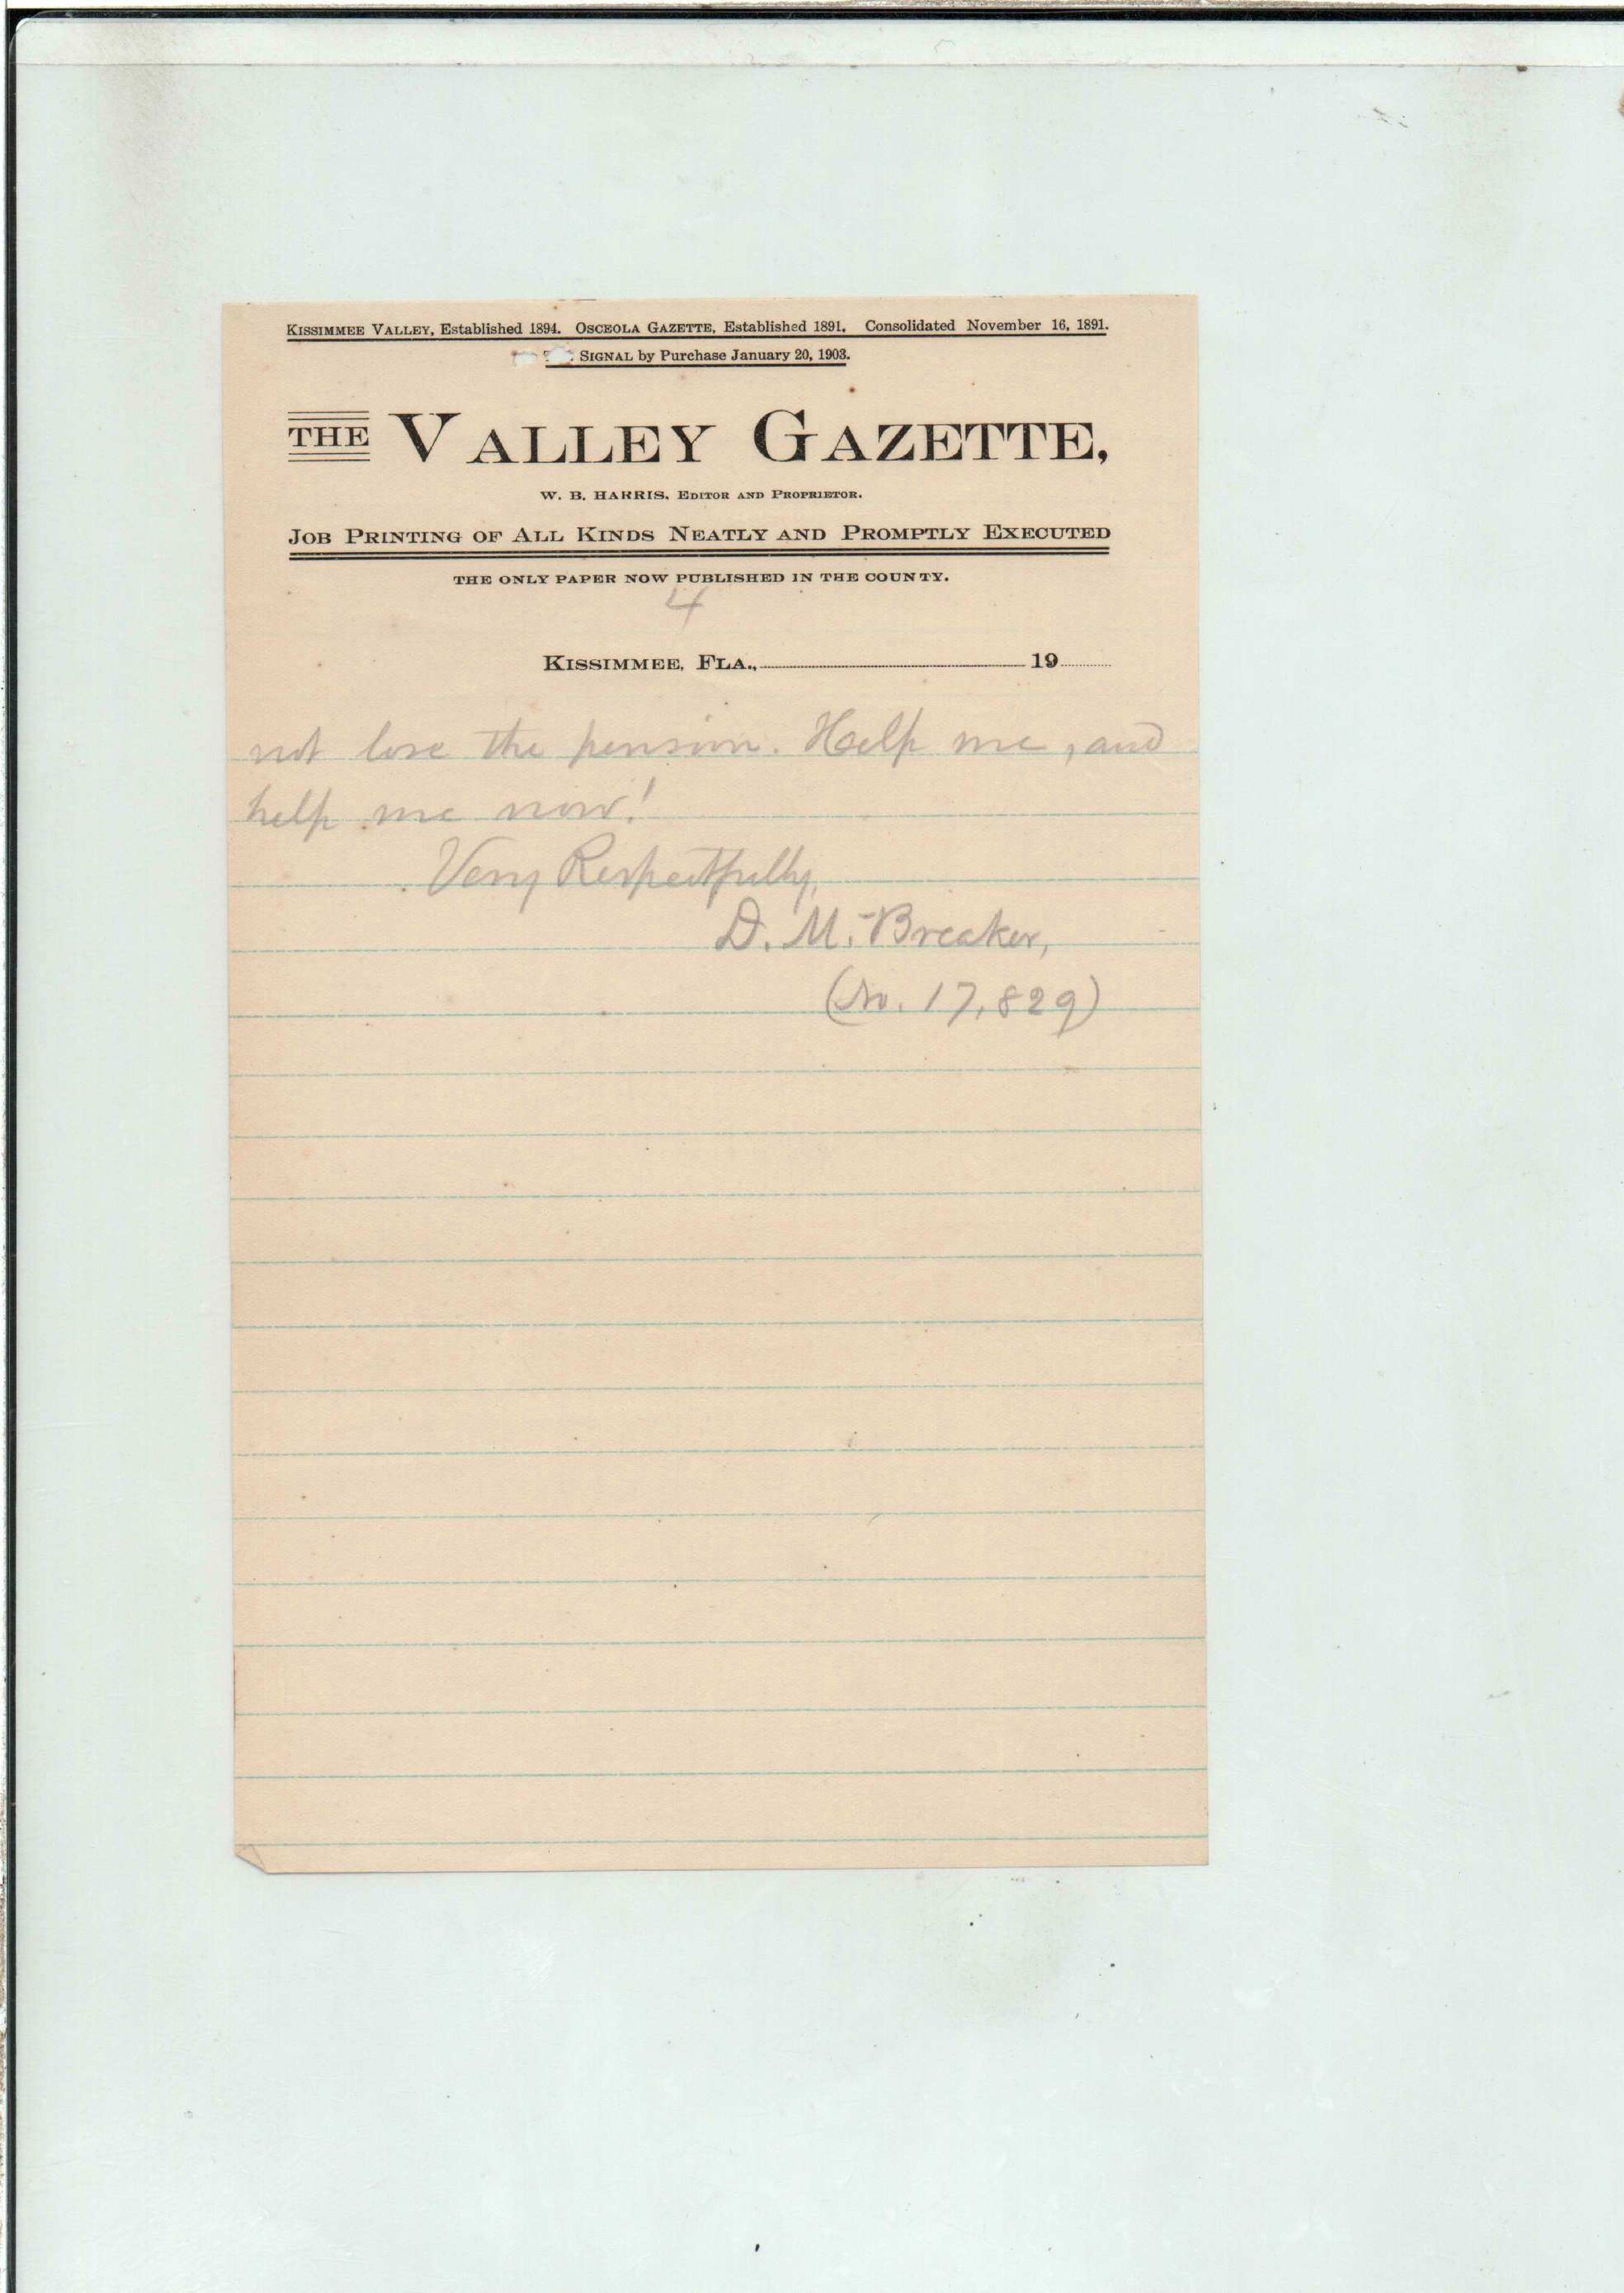 KISSIMMEE VALLEY, Established 1894. OSCEOLA GAZETTE, Established 1891. Consolidated November 16, 1891.
SIGNAL by Purchase January 20, 1903.
THE VALLEY GAZETTE,
W. B. HARRIS, EDITOR AND PROPRIETOR.
JOB PRINTING OF ALL KINDS NEATLY AND PROMPTLY EXECUTED
THE ONLY PAPER NOW PUBLISHED IN THE COUNTY.
4
KISSIMMEE, FLA., 19
not lose the pension. Help me, and
help me now!
Very Respectfully,
D. M. Breaker,
(No. 17,829)